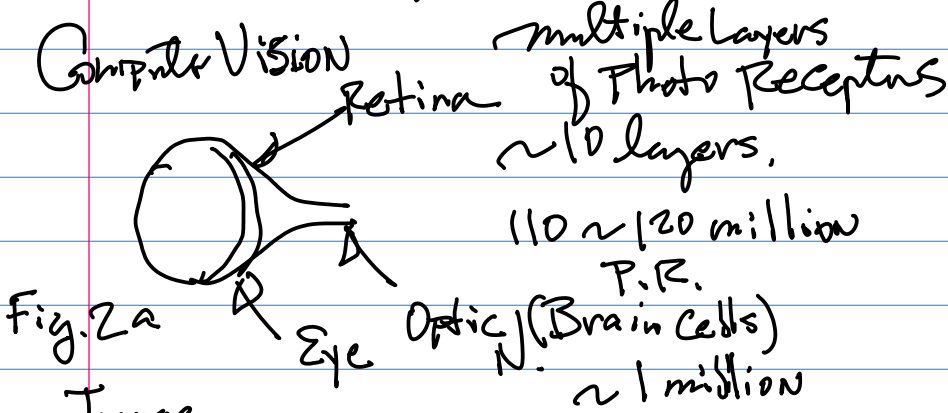 Computer Vision
Retina
multiple Layers
of Photo Receptors
~10 layers.
110 ~ 120 million
P.R.
Fig. 2a
Eye
Optic N. (Brain Cells)
~ 1 million